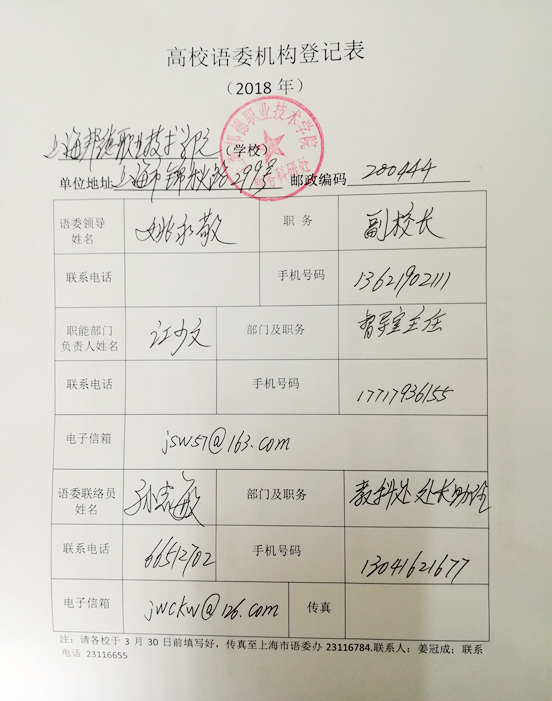 高校语委机构登记表
（2018 年）
上海邦德职业技术学院（学校）
单位地址 上海市锦秋路299号 邮政编码 200444
语委领导姓名 姚永敬 职 务 副校长
联系电话 手机号码 13621902111
职能部门负责人姓名 江少文 部门及职务 督导室主任
联系电话 手机号码 17717936155
电子信箱 jsw57@163.com
语委联络员姓名 孙志敏 部门及职务 教科处 处长助理
联系电话 66512702 手机号码 13041621677
电子信箱 jwckw@126.com 传真
注：请各校于 3 月 30 日前填写好，传真至上海市语委办 23116784.联系人：姜冠成；联系
电话 23116655